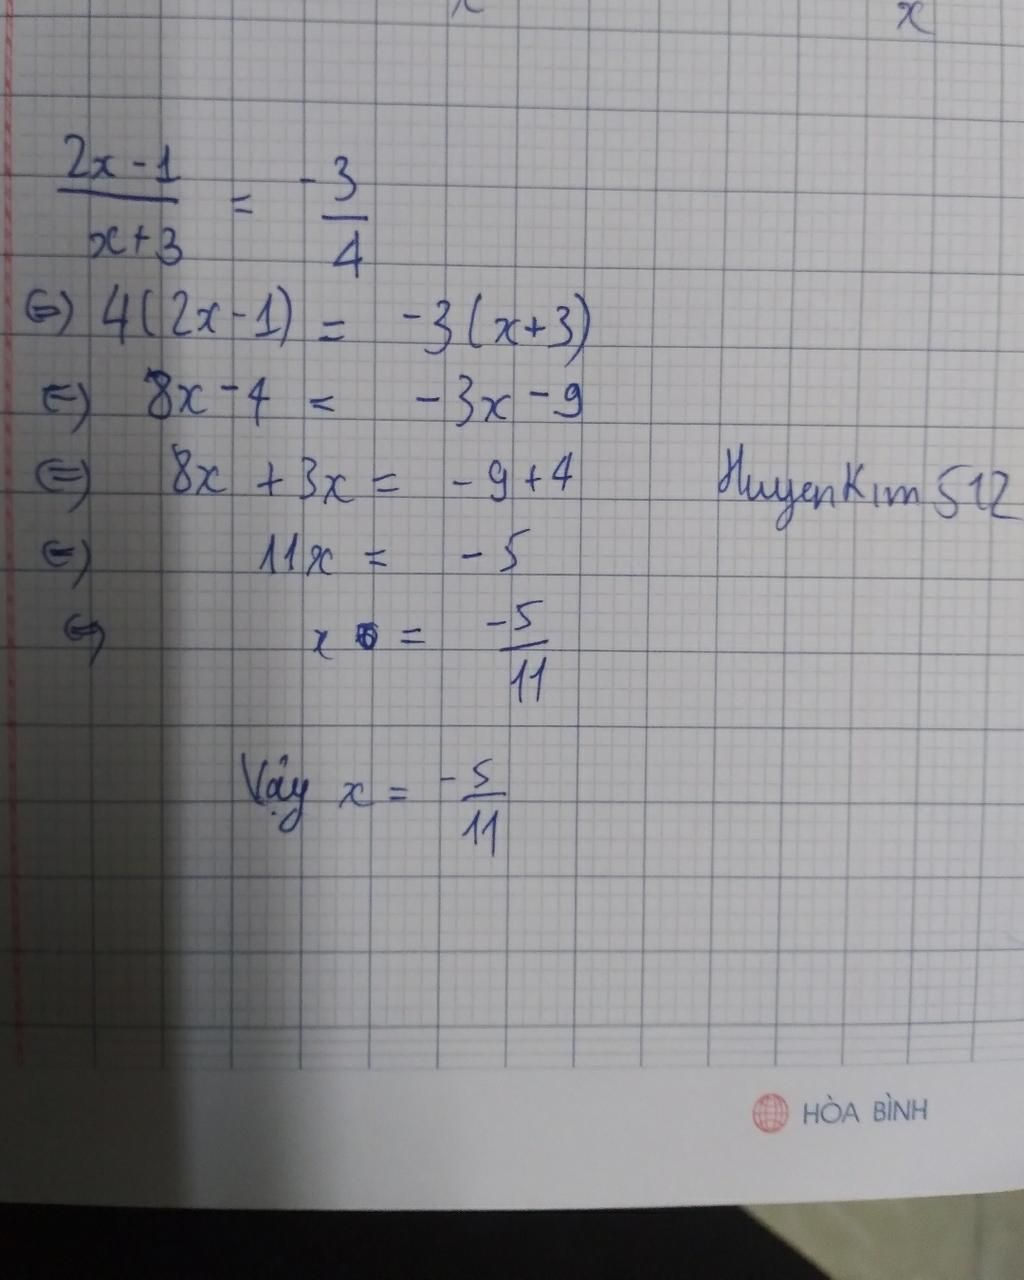 x
(2x-1)/(x+3) = -3/4
⇔) 4(2x-1) = -3(x+3)
⇔) 8x-4 = -3x-9
⇔) 8x+3x = -9+4
HuyenKim512
⇔) 11x = -5
⇔) x = -5/11
Vậy x = -5/11
HÒA BÌNH